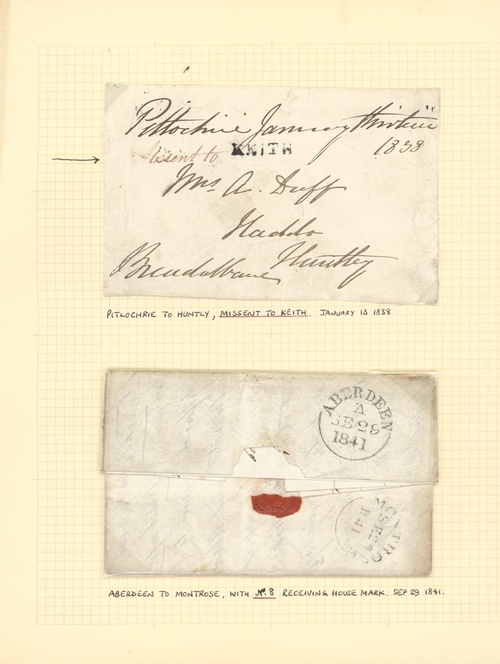 Pitlochrie January thirteen
1838
Missent to KEITH
Mrs A. Duff
Haddo
Huntley
Breadalbane
PITLOCHRIE TO HUNTLY, MISSENT TO KEITH. JANUARY 13 1838
ABERDEEN
A
SE 29
1841
MONTROSE
SE
ABERDEEN TO MONTROSE, WITH No. 8 RECEIVING HOUSE MARK. SEP 29 1841.